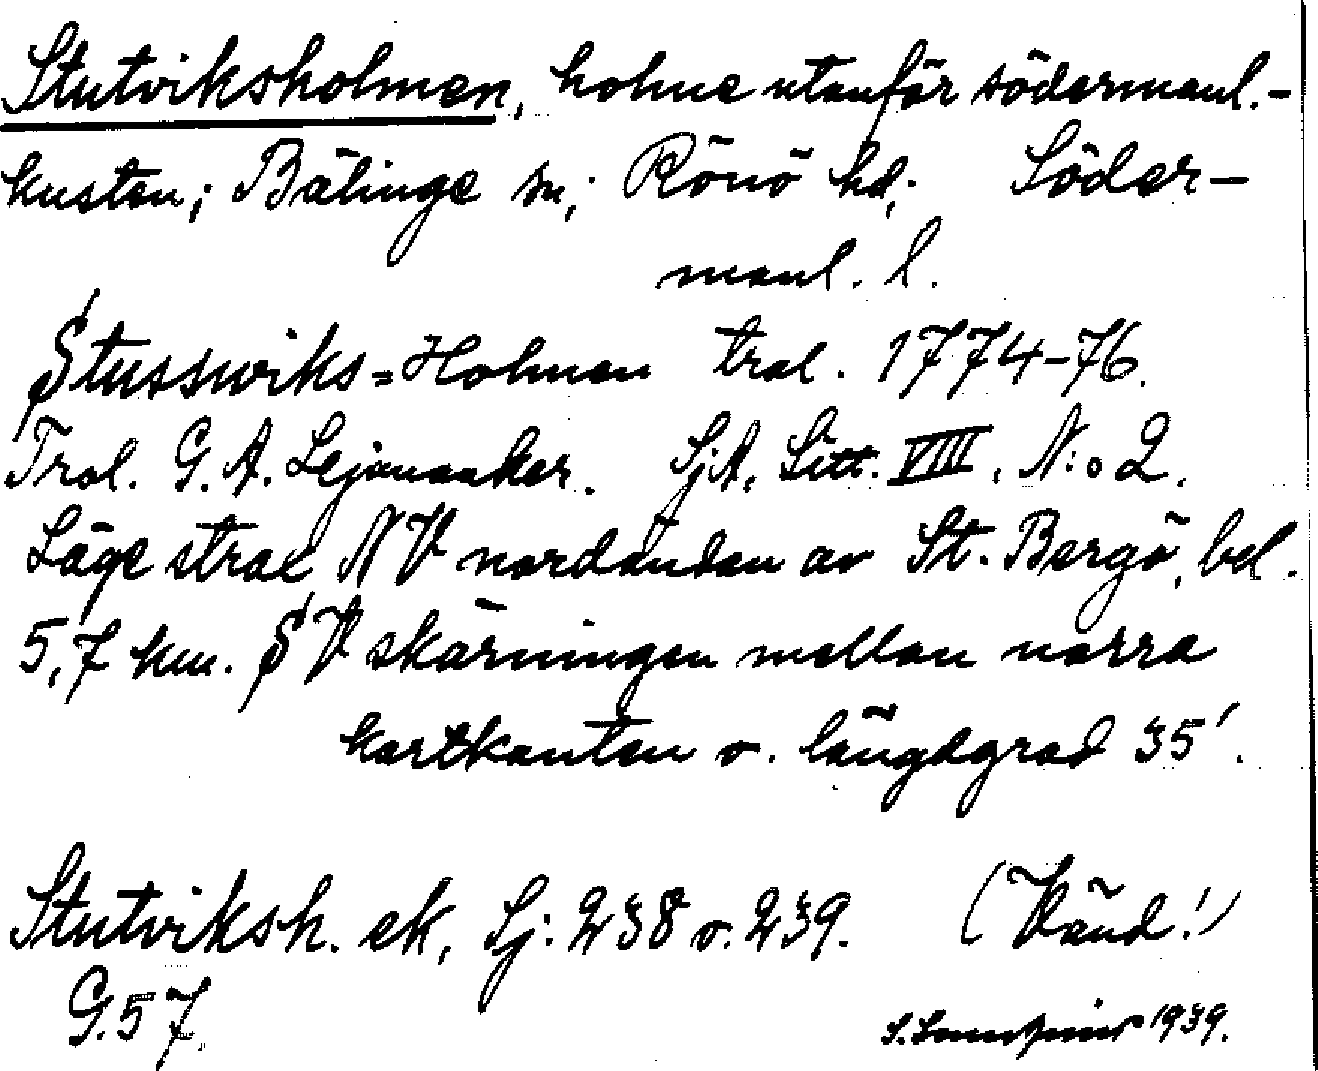 Stutviksholmen, holme utanför södermanl.-
kusten; Bälinge sn; Rönö hd; Söder-
manl. l.
Stusswiks=Holmen tral. 1774-76.
Trol. G. A. Lejonanker. SjA, Litt. VIII, N:o 2.
Läge strax NV nordändan av St. Bergö, bel.
5,7 km. SV skärningen mellan norra
kartkanten o. längdgrad 35'.
Stutviksh. ek, Sj: 238 o. 239. (Vänd!)
G.57. 1939.